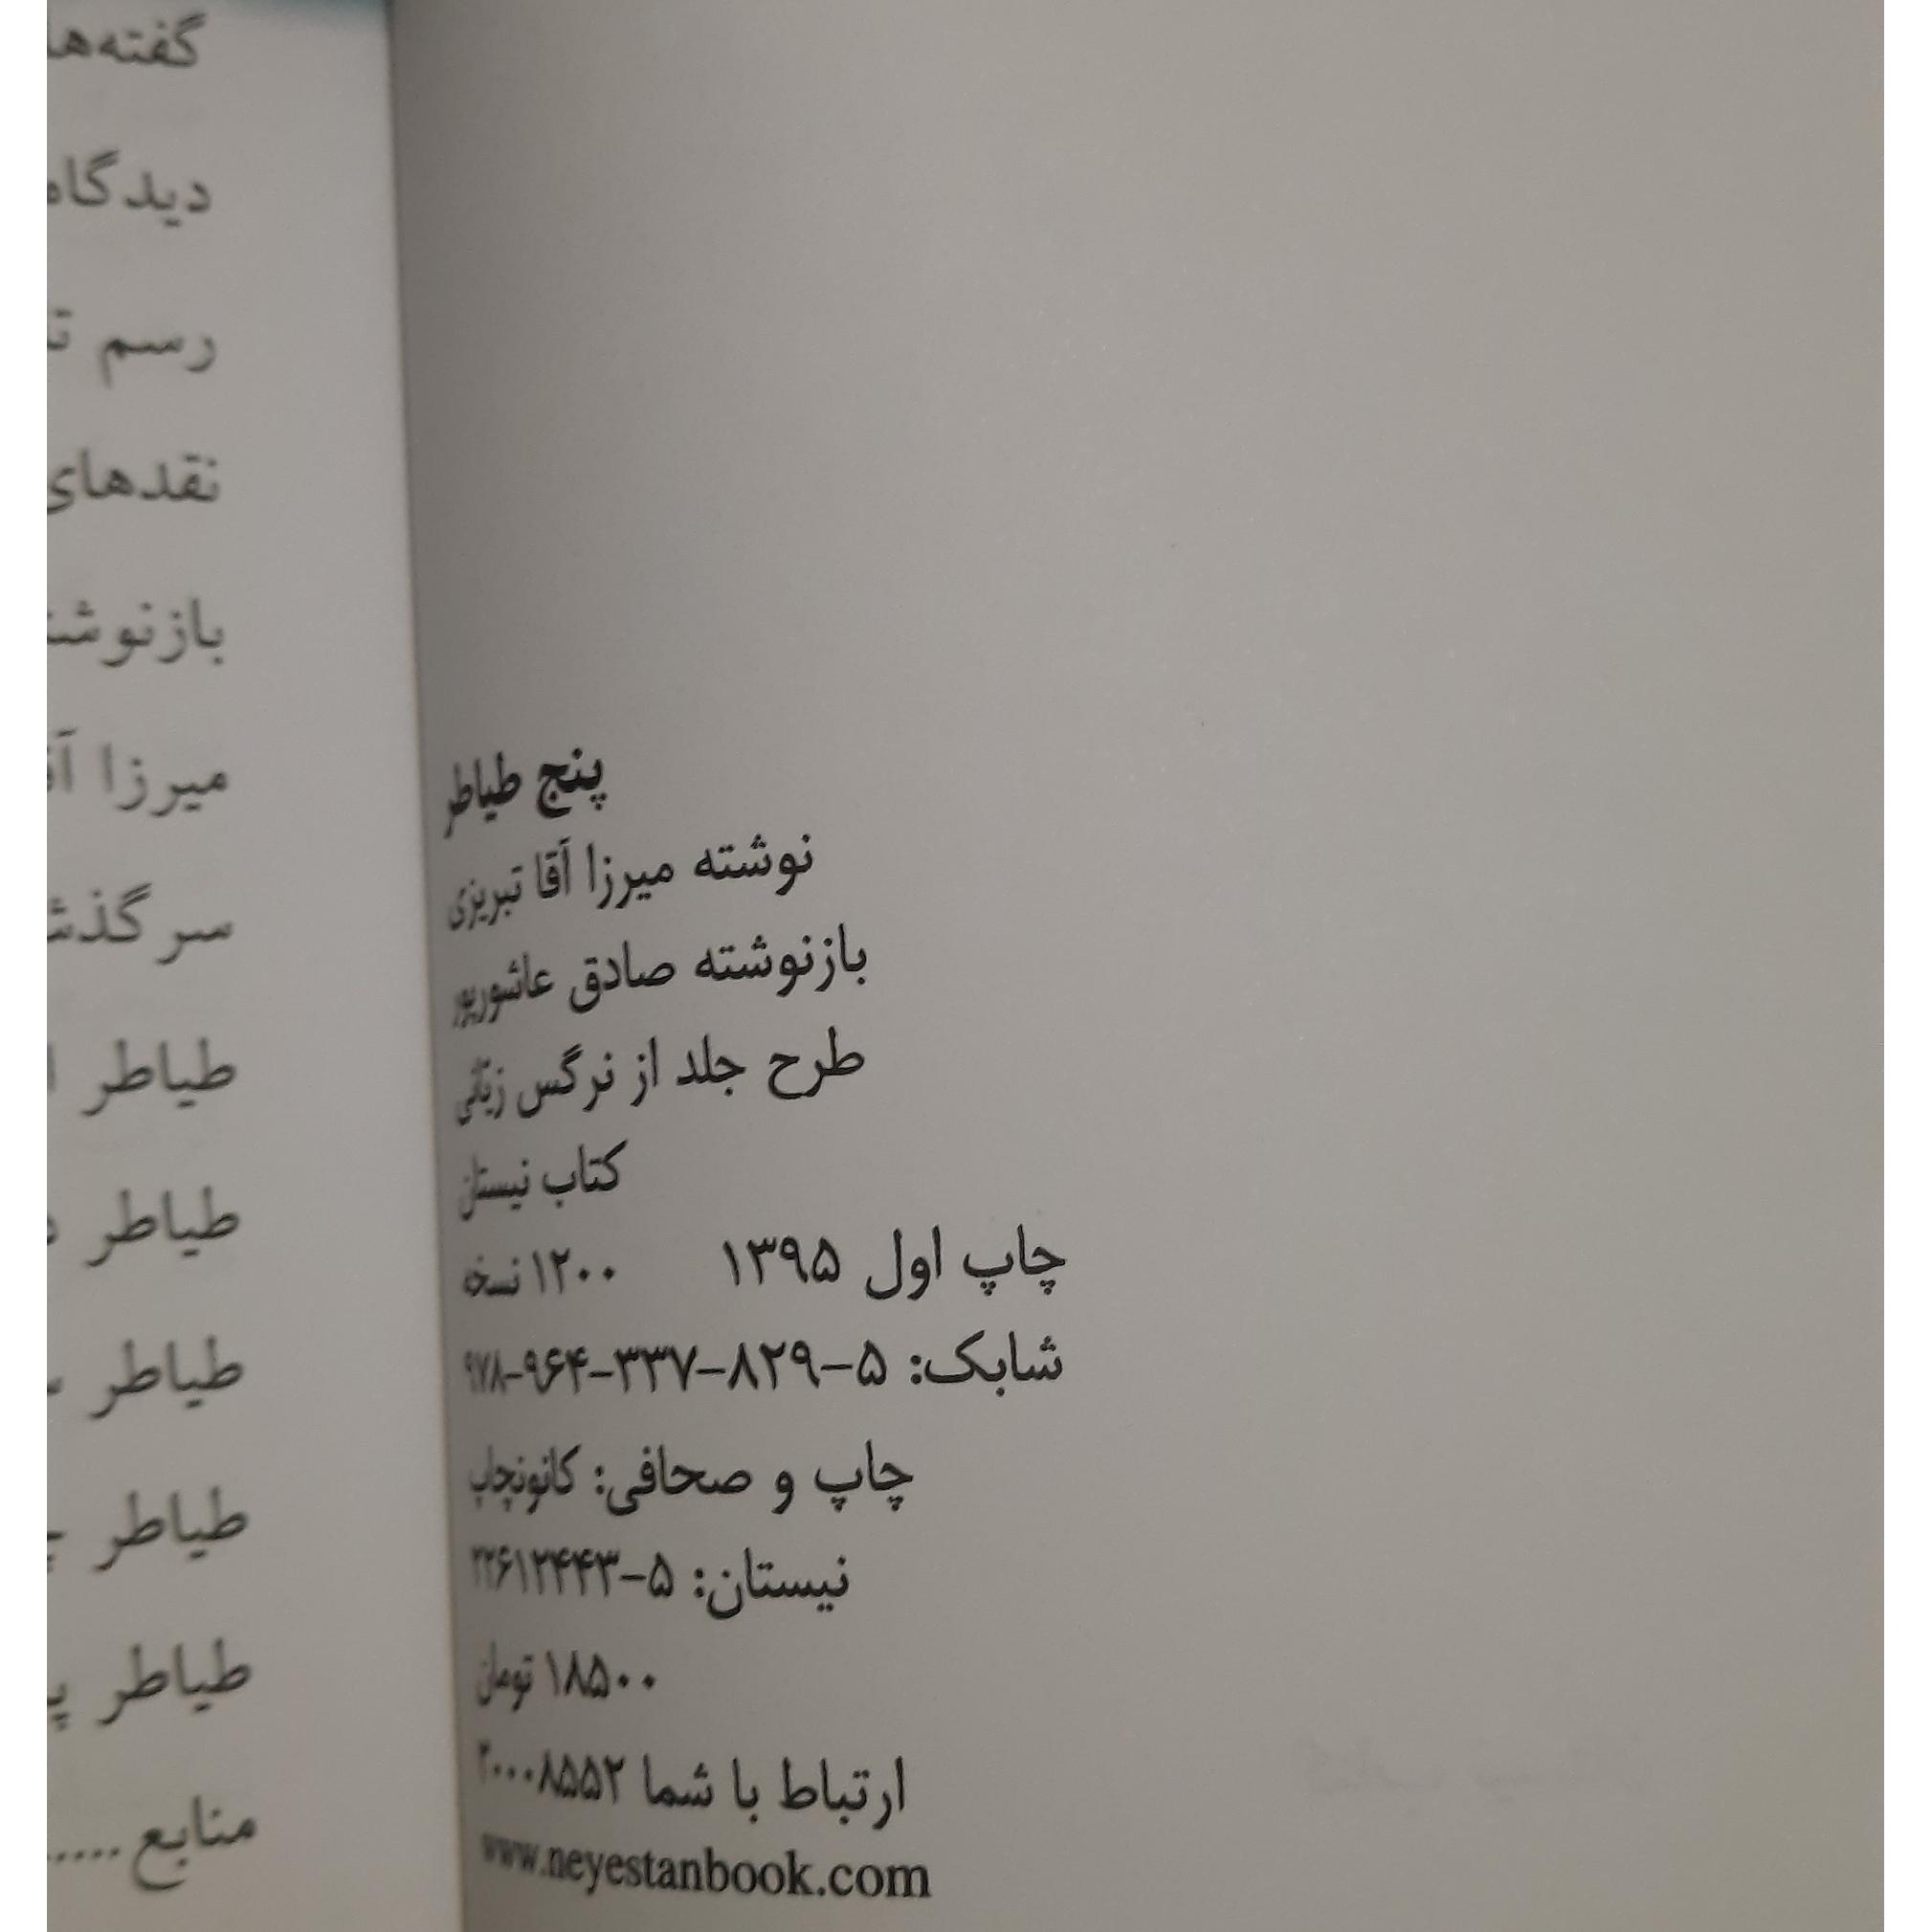 پنج طیاطر
نوشته میرزا آقا تبریزی
بازنوشته صادق عاشورپور
طرح جلد از نرگس زیّانی
کتاب نیستان
چاپ اول ۱۳۹۵ ۱۲۰۰ نسخه
شابک: ۵-۸۲۹-۳۳۷-۹۶۴-۹۷۸
چاپ و صحافی: کانونچاپ
نیستان: ۵-۲۲۶۱۲۴۴۳
۱۸۵۰۰ تومان
ارتباط با شما ۲۰۰۰۸۵۵۲
www.neyestanbook.com
گفته‌ها
دیدگاه
رسم
نقدهای
میرزا
طیاطر
طیاطر
طیاطر
طیاطر
طیاطر
منابع.....